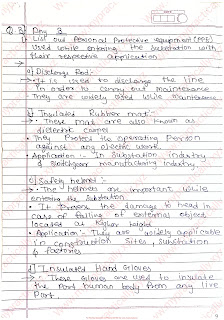 Q.3] Day 3.
1] List out Personal Protective equipment (PPE)
used while entering the substation with
their respective application
→
a) Discharge Rod:-
→ It is used to discharge the line
in order to carry out maintenance
They are widely used while maintenance
b) Insulated Rubber mat:-
→ They mat are also known as
dielectric
They Protect the operating Person
against any electric work.
Application:- In Substation industry
& manufacturing industry
c) Safety helmet:-
→ The helmets are important while
entering the substation
It Prevent the damage to head in
case of falling of external object
located at higher height
Application:- They are widely applicable
in construction sites, substation
& factories
d) Insulated Hand Gloves
→ These Gloves are used to insulate
the Part human body from any live
Part.